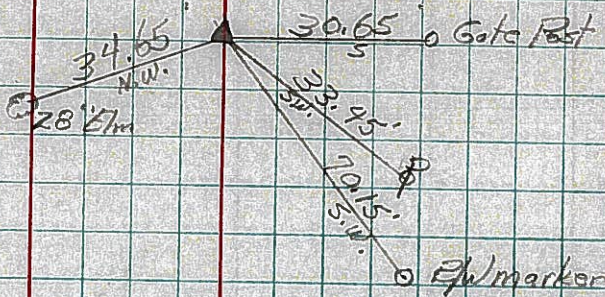 34.65
N.W.
28" Elm
30.65
S
Gate Post
33.45
S.W.
70.15
S.W.
R/W marker